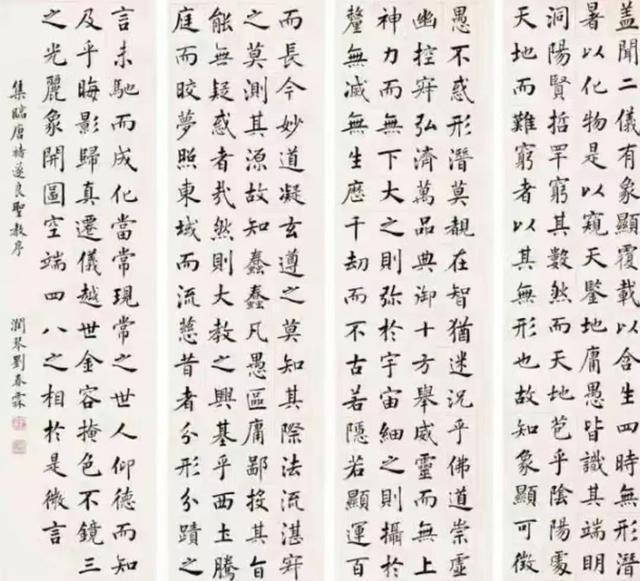 盖聞二儀有象顯覆載以含生四時無形潛
暑以化物是以窺天鑒地庸愚皆識其端明
洞陽賢哲罕窮其數然而天地苞乎陰陽處
天地而難窮者以其無形也故知象顯可徵
愚不惑形潛莫覩在智猶迷況乎佛道崇虛
幽控寂弘濟萬品典御十方舉威靈而無上
神力而無下大之則弥於宇宙細之則攝於
釐無滅無生歷千劫而不古若隱若顯運百
而長今妙道凝玄遵之莫知其際法流湛寂
之莫測其源故知蠢蠢凡愚區庸鄙投其旨
能無疑惑者哉然則大教之興基乎西土騰
庭而皎夢照東域而流慈昔者分形分蹟之
言未馳而成化當常現常之世人仰德而知
及乎晦影歸真遷儀越世金容掩色不鏡三
之光麗象開圖空端四八之相於是微言
集臨唐褚遂良聖教序
潤琴劉春霖